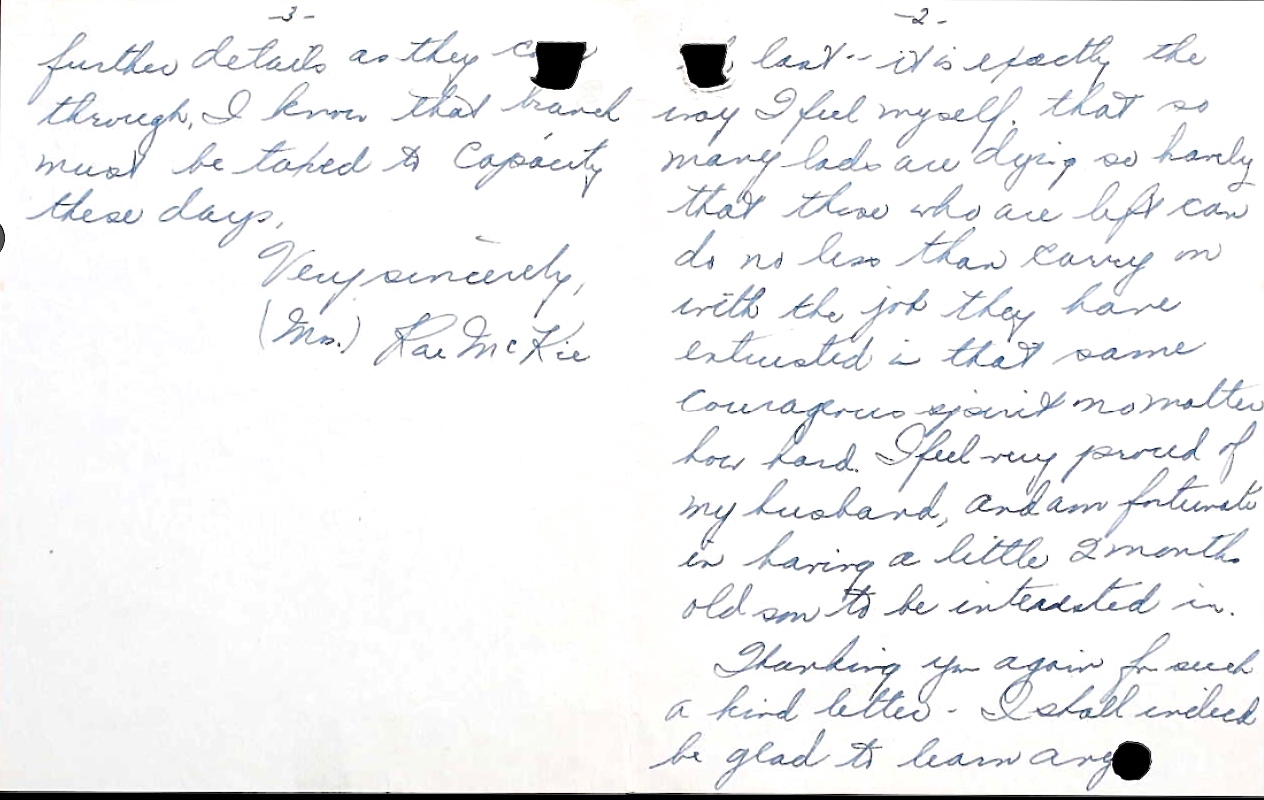 -2-
last -- it is exactly the
way I feel myself. that so
many lads are dying so
that those who are left can
do no less than carry on
with the job they have
entrusted in that same
courageous spirit no matter
how hard. I feel very proud of
my husband, and am fortunate
in having a little 2 months
old son to be interested in.
Thanking you again for such
a kind letter - I shall indeed
be glad to learn any
-3-
further details as they
through, I know that branch
must be taxed to capacity
these days,
Very sincerely,
(Mrs.) Rae McKie